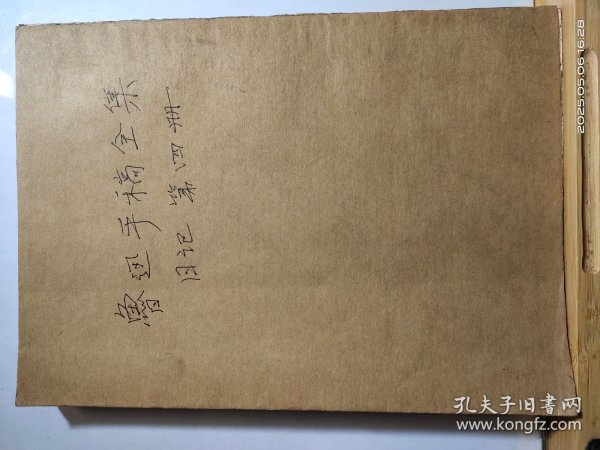 魯迅手稿全集
日记 第四册
2025.05.06 16:28
孔夫子旧書网
www.kongfz.com